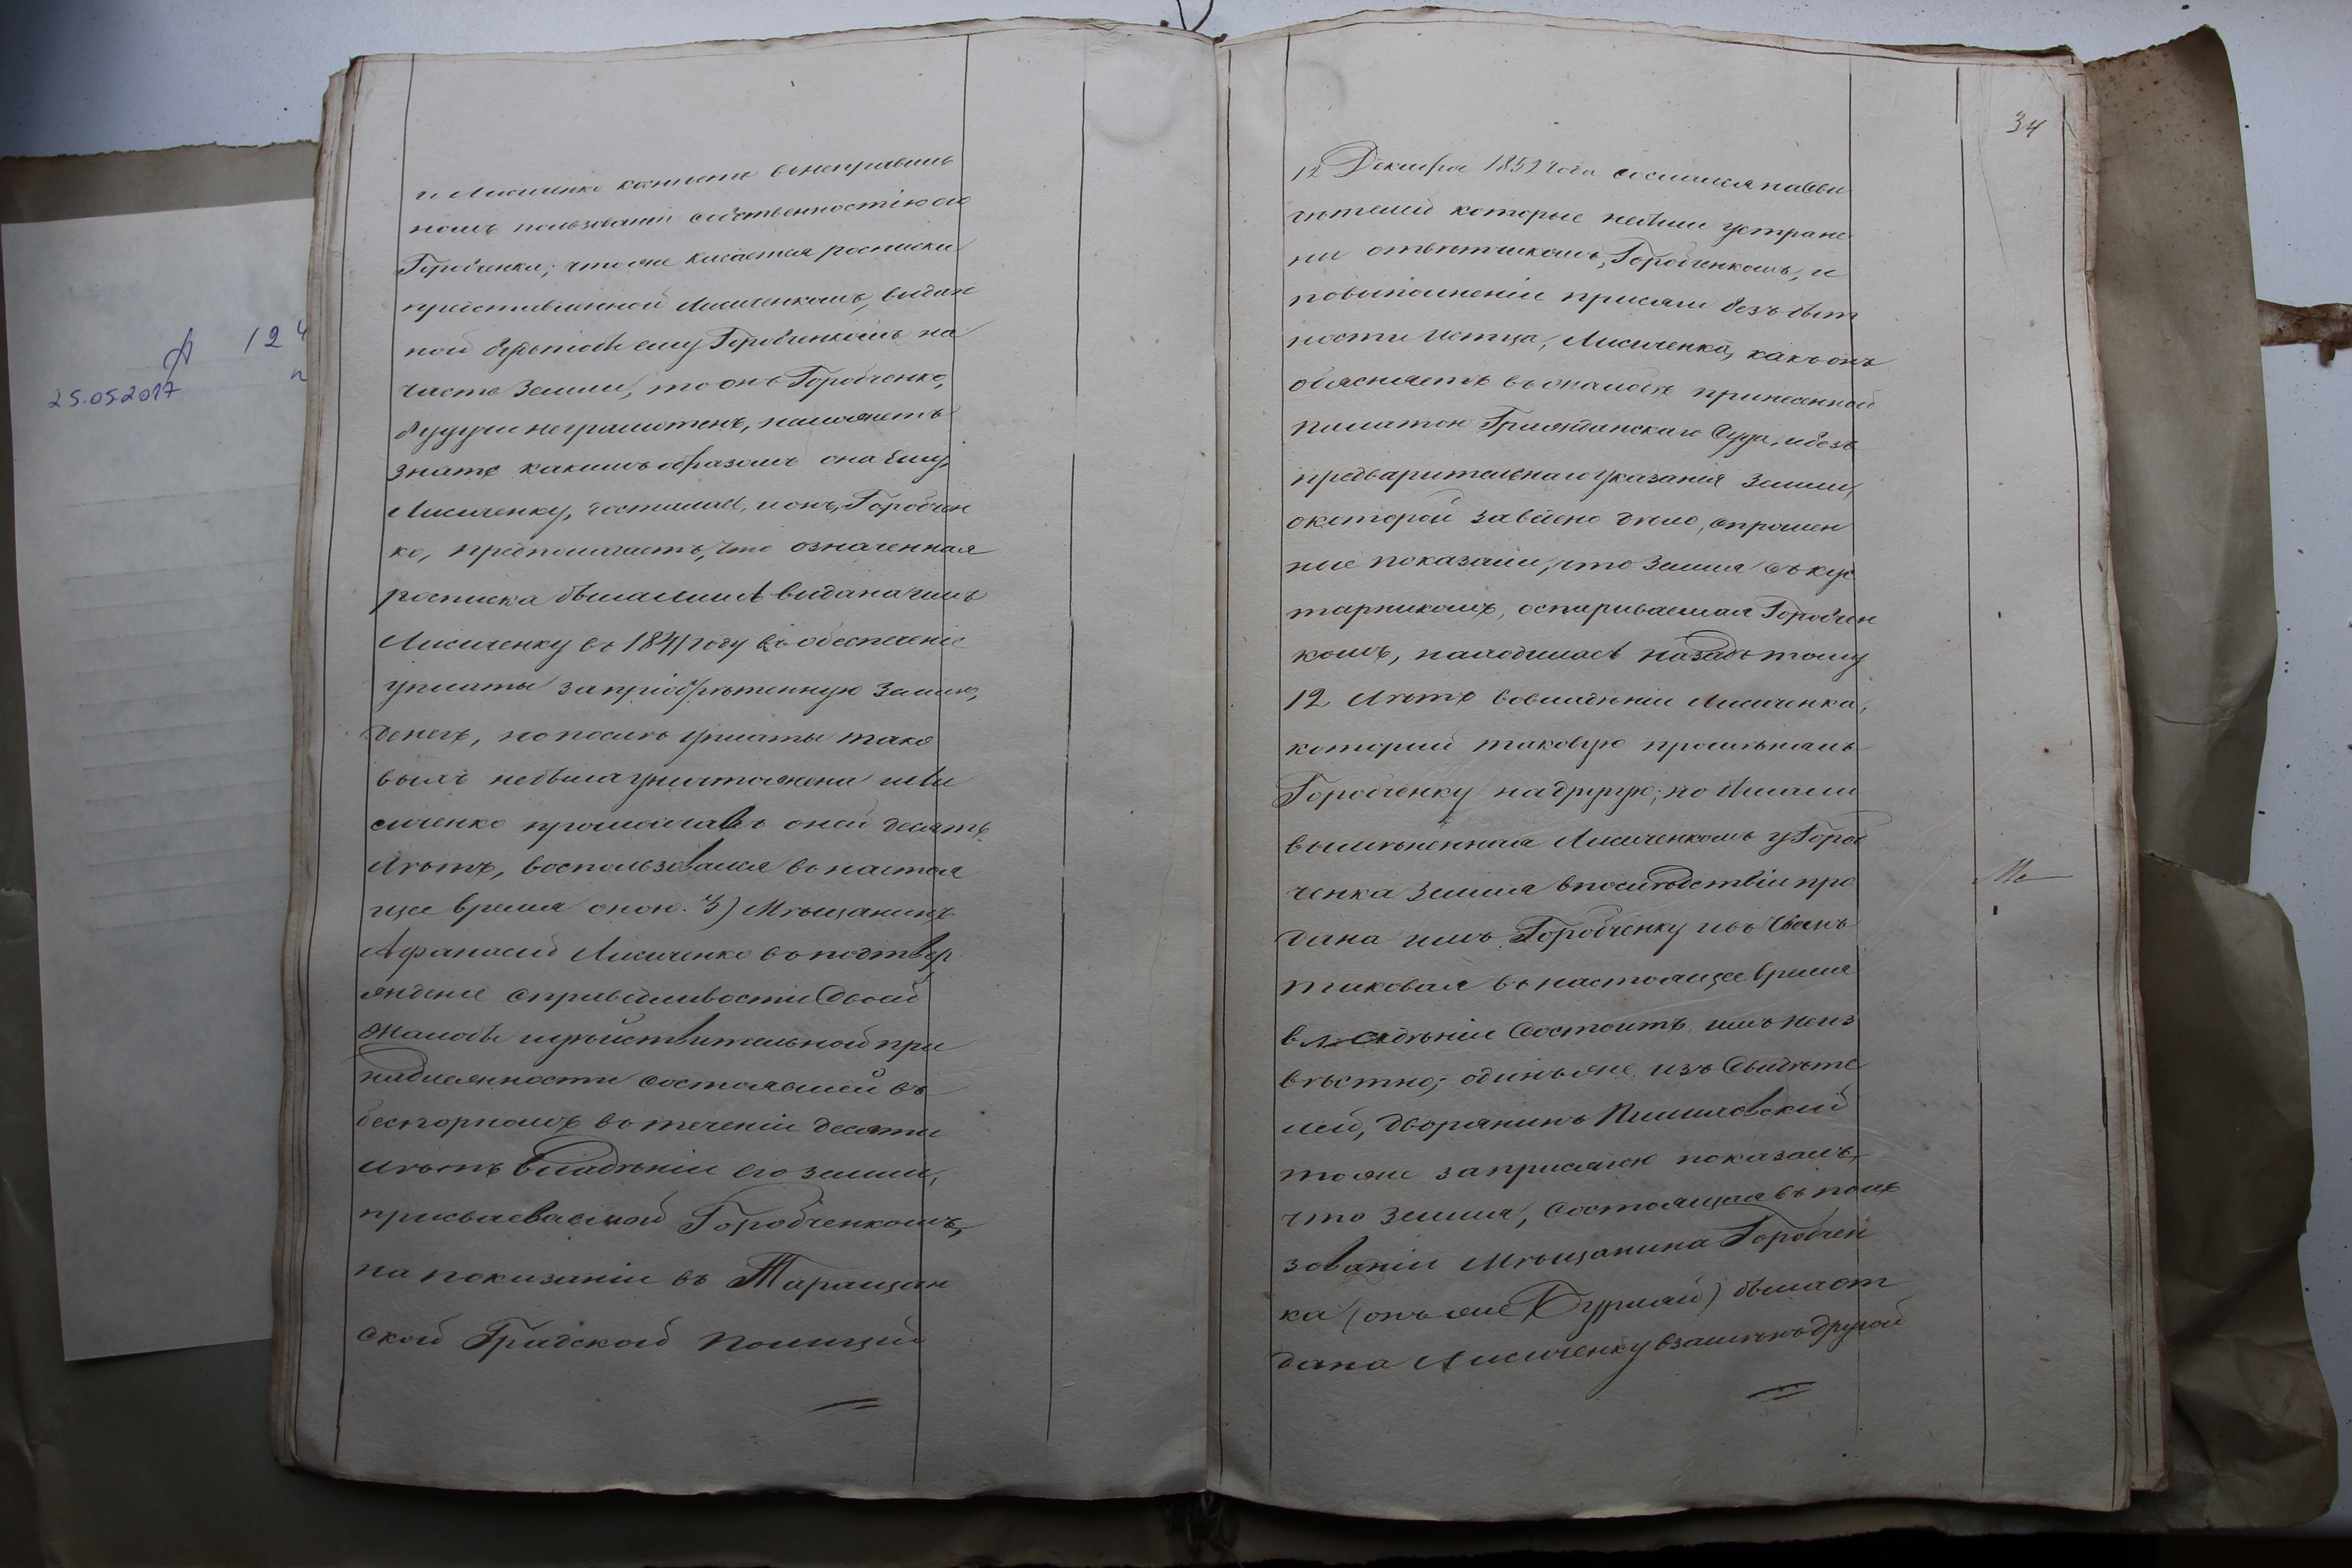 А 124
25.05.2017
и Лисиченко коснетъ въ неправиль
номъ пользованіи собственностію его
Горобченка; что же касается росписки
представленной Лисиченкомъ, выдан
ной будьтобы ему Горобченкомъ на
часть Земли, то онъ Горобченко,
будучи неграмотенъ, не можетъ
знать какимъ образомъ она Ему,
Лисиченку, досталась, и онъ, Горобчен
ко, предполагаетъ, что означенная
росписка была лишь выдана имъ
Лисиченку въ 1841 году въ обеспеченіе
уплаты за пріобрѣтенную Землю,
денегъ, но послѣ уплаты тако
выхъ небыла уничтожена и Ли
сиченко промолчавъ оней десять
лѣтъ, воспользовался въ настоя
щее время оною. 3) Мѣщанинъ
Афанасій Лисиченко въ подтвер
жденіе справедливости Своей
Жалобы и дѣйствительной при
надлежности состоявшей въ
безспорномъ въ теченіи десяти
лѣтъ владѣніи его земли,
присваеваемой Горобченкомъ,
на показаніи въ Таращан
ской Градской Полиціи
34
12 Декабря 1852 года сослался на Сви
дѣтелей которые небыли устране
ны отвѣтчикомъ, Горобченкомъ, и
по выполненіи присяги безъ быт
ности Истца, Лисиченка, какъ онъ
объясняетъ въ жалобѣ принесенной
Палатою Гражданскаго Суда, и безъ
предварительнаго указанія Земли,
о которой заведено дѣло, спрошен
ные показали, что Земля съ кус
тарникомъ, оспариваемая Горобчен
комъ, находилась назадъ тому
12 лѣтъ во владѣніи Лисиченка,
который таковую промѣнялъ
Горобченку на другую; но была ли
вымѣненная Лисиченкомъ у Гороб
ченка Земля впослѣдствіи про
дана имъ Горобченку и въ чьемъ
таковая въ настоящее время
владѣніи Состоитъ имъ неиз
вѣстно; одинъ же изъ Свидѣте
лей, дворянинъ
тоже за присягою показалъ,
что Земля, Состоящая въ поль
зованіи Мѣщанина Горобчен
ка (онъ же Бурлай) была от
дана Лисиченку взамѣнъ другой